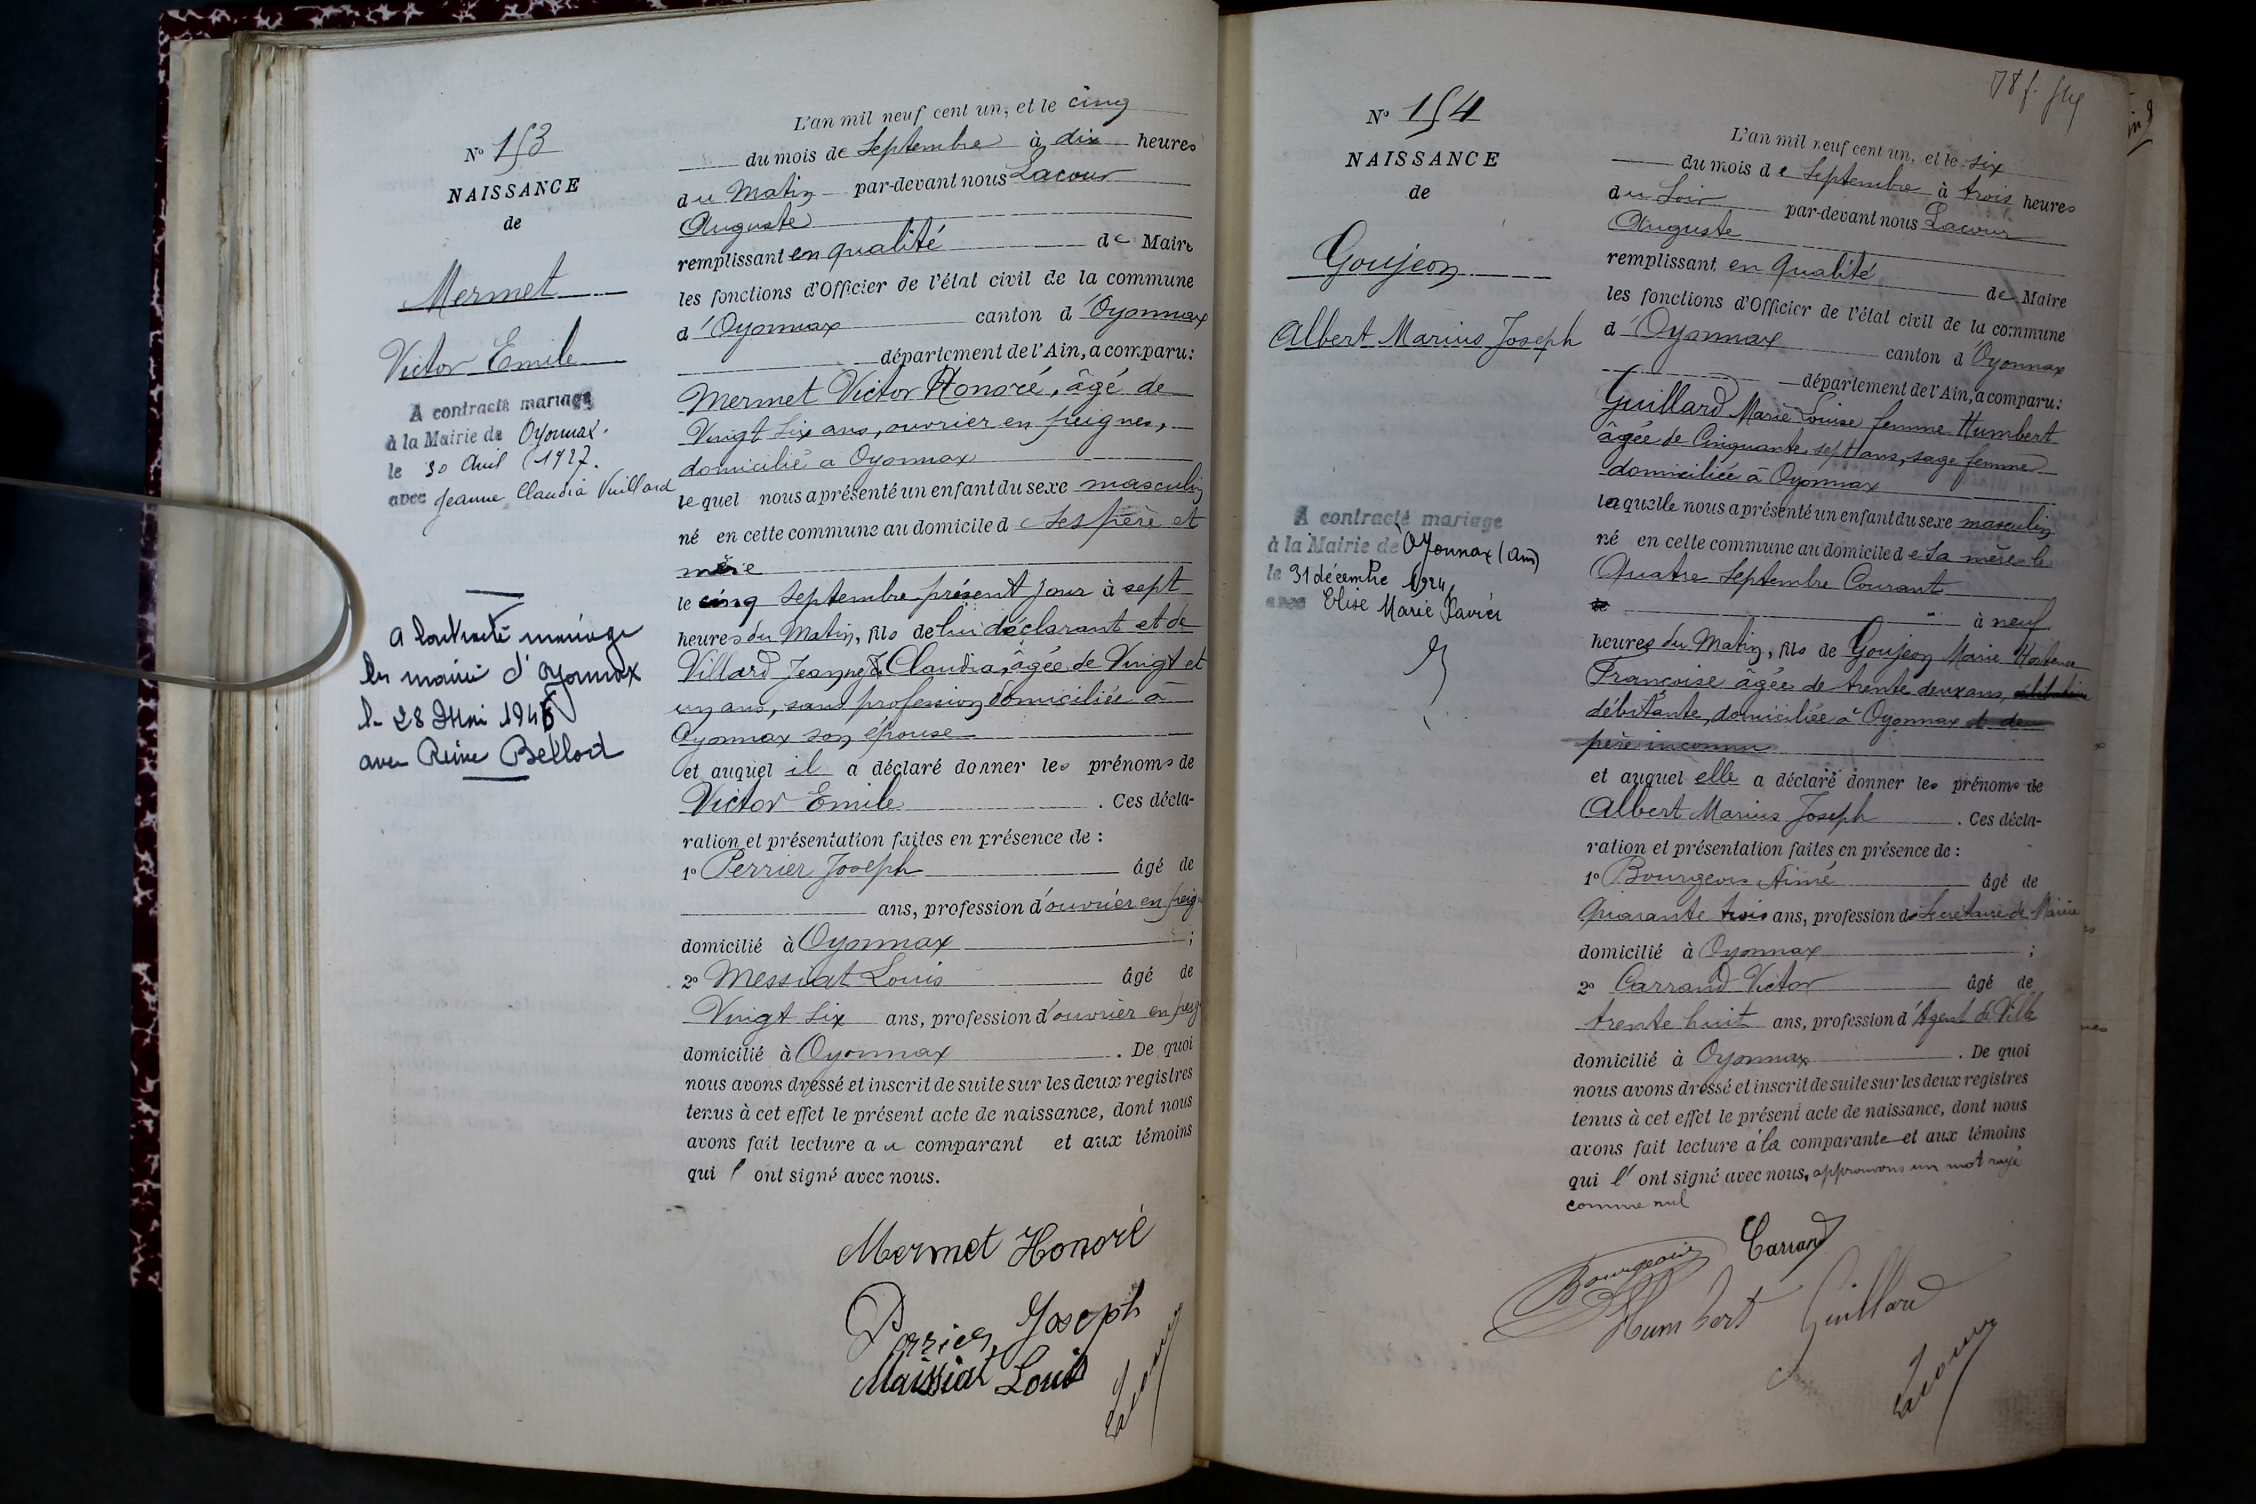 N° 153
NAISSANCE
de
Mermet
Victor Emile
A contracté mariage
à la Mairie de Oyonnax.
le 30 Avril 1927.
avec Jeanne Claudia Vuillard
a contracté mariage
en mairie d'Oyonnax
le 28 Mai 1946
avec Reine Bellod
L'an mil neuf cent un, et le cinq
du mois de Septembre à dix heures
du Matin par-devant nous Lacour
Auguste
remplissant en qualité de Maire
les fonctions d'Officier de l'état civil de la commune
d'Oyonnax canton d'Oyonnax
département de l'Ain, a comparu:
Mermet Victor Honoré, âgé de
Vingt six ans, ouvrier en peignes,
domicilié à Oyonnax
lequel nous a présenté un enfant du sexe masculin
né en cette commune au domicile de ses père et
mère
le cinq Septembre présent jour à sept
heures du Matin, fils de lui déclarant et de
Villard Jeanne Claudia, âgée de Vingt et
un ans, sans profession domiciliée à
Oyonnax son épouse
et auquel il a déclaré donner les prénoms de
Victor Emile. Ces décla-
ration et présentation faites en présence de :
1° Perrier Joseph âgé de
ans, profession d'ouvrier en peig
domicilié à Oyonnax ;
2° Messiat Louis âgé de
Vingt six ans, profession d'ouvrier en peig
domicilié à Oyonnax. De quoi
nous avons dressé et inscrit de suite sur les deux registres
tenus à cet effet le présent acte de naissance, dont nous
avons fait lecture au comparant et aux témoins
qui l'ont signé avec nous.
Mermet Honoré
Perrier Joseph
Maissiat Louis
Lacour
N° 154
NAISSANCE
de
Goujeon
Albert Marius Joseph
A contracté mariage
à la Mairie de Oyonnax (Ain)
le 31 décembre 1924
avec Elise Marie Pavier
L'an mil neuf cent un, et le six
du mois de Septembre à trois heures
du Soir par-devant nous Lacour
Auguste
remplissant en qualité de Maire
les fonctions d'Officier de l'état civil de la commune
d'Oyonnax canton d'Oyonnax
département de l'Ain, a comparu:
Guillard Marie Louise femme Humbert
âgée de Cinquante sept ans, sage femme
domiciliée à Oyonnax
laquelle nous a présenté un enfant du sexe masculin
né en cette commune au domicile de sa mère le
Quatre Septembre Courant
le à neuf
heures du Matin, fils de Goujeon Marie Hortense
Françoise âgée de trente deux ans,
débitante, domiciliée à Oyonnax et de
père inconnu
et auquel elle a déclaré donner les prénoms de
Albert Marius Joseph. Ces décla-
ration et présentation faites en présence de :
1° Bourgeois Aimé âgé de
Quarante trois ans, profession de Secrétaire de Mairie
domicilié à Oyonnax ;
2° Carrand Victor âgé de
trente huit ans, profession d'Agent de Ville
domicilié à Oyonnax. De quoi
nous avons dressé et inscrit de suite sur les deux registres
tenus à cet effet le présent acte de naissance, dont nous
avons fait lecture à la comparante et aux témoins
qui l'ont signé avec nous, approuvons un mot rayé
comme nul
Bourgeois Carrand
Humbert Guillard
Lacour